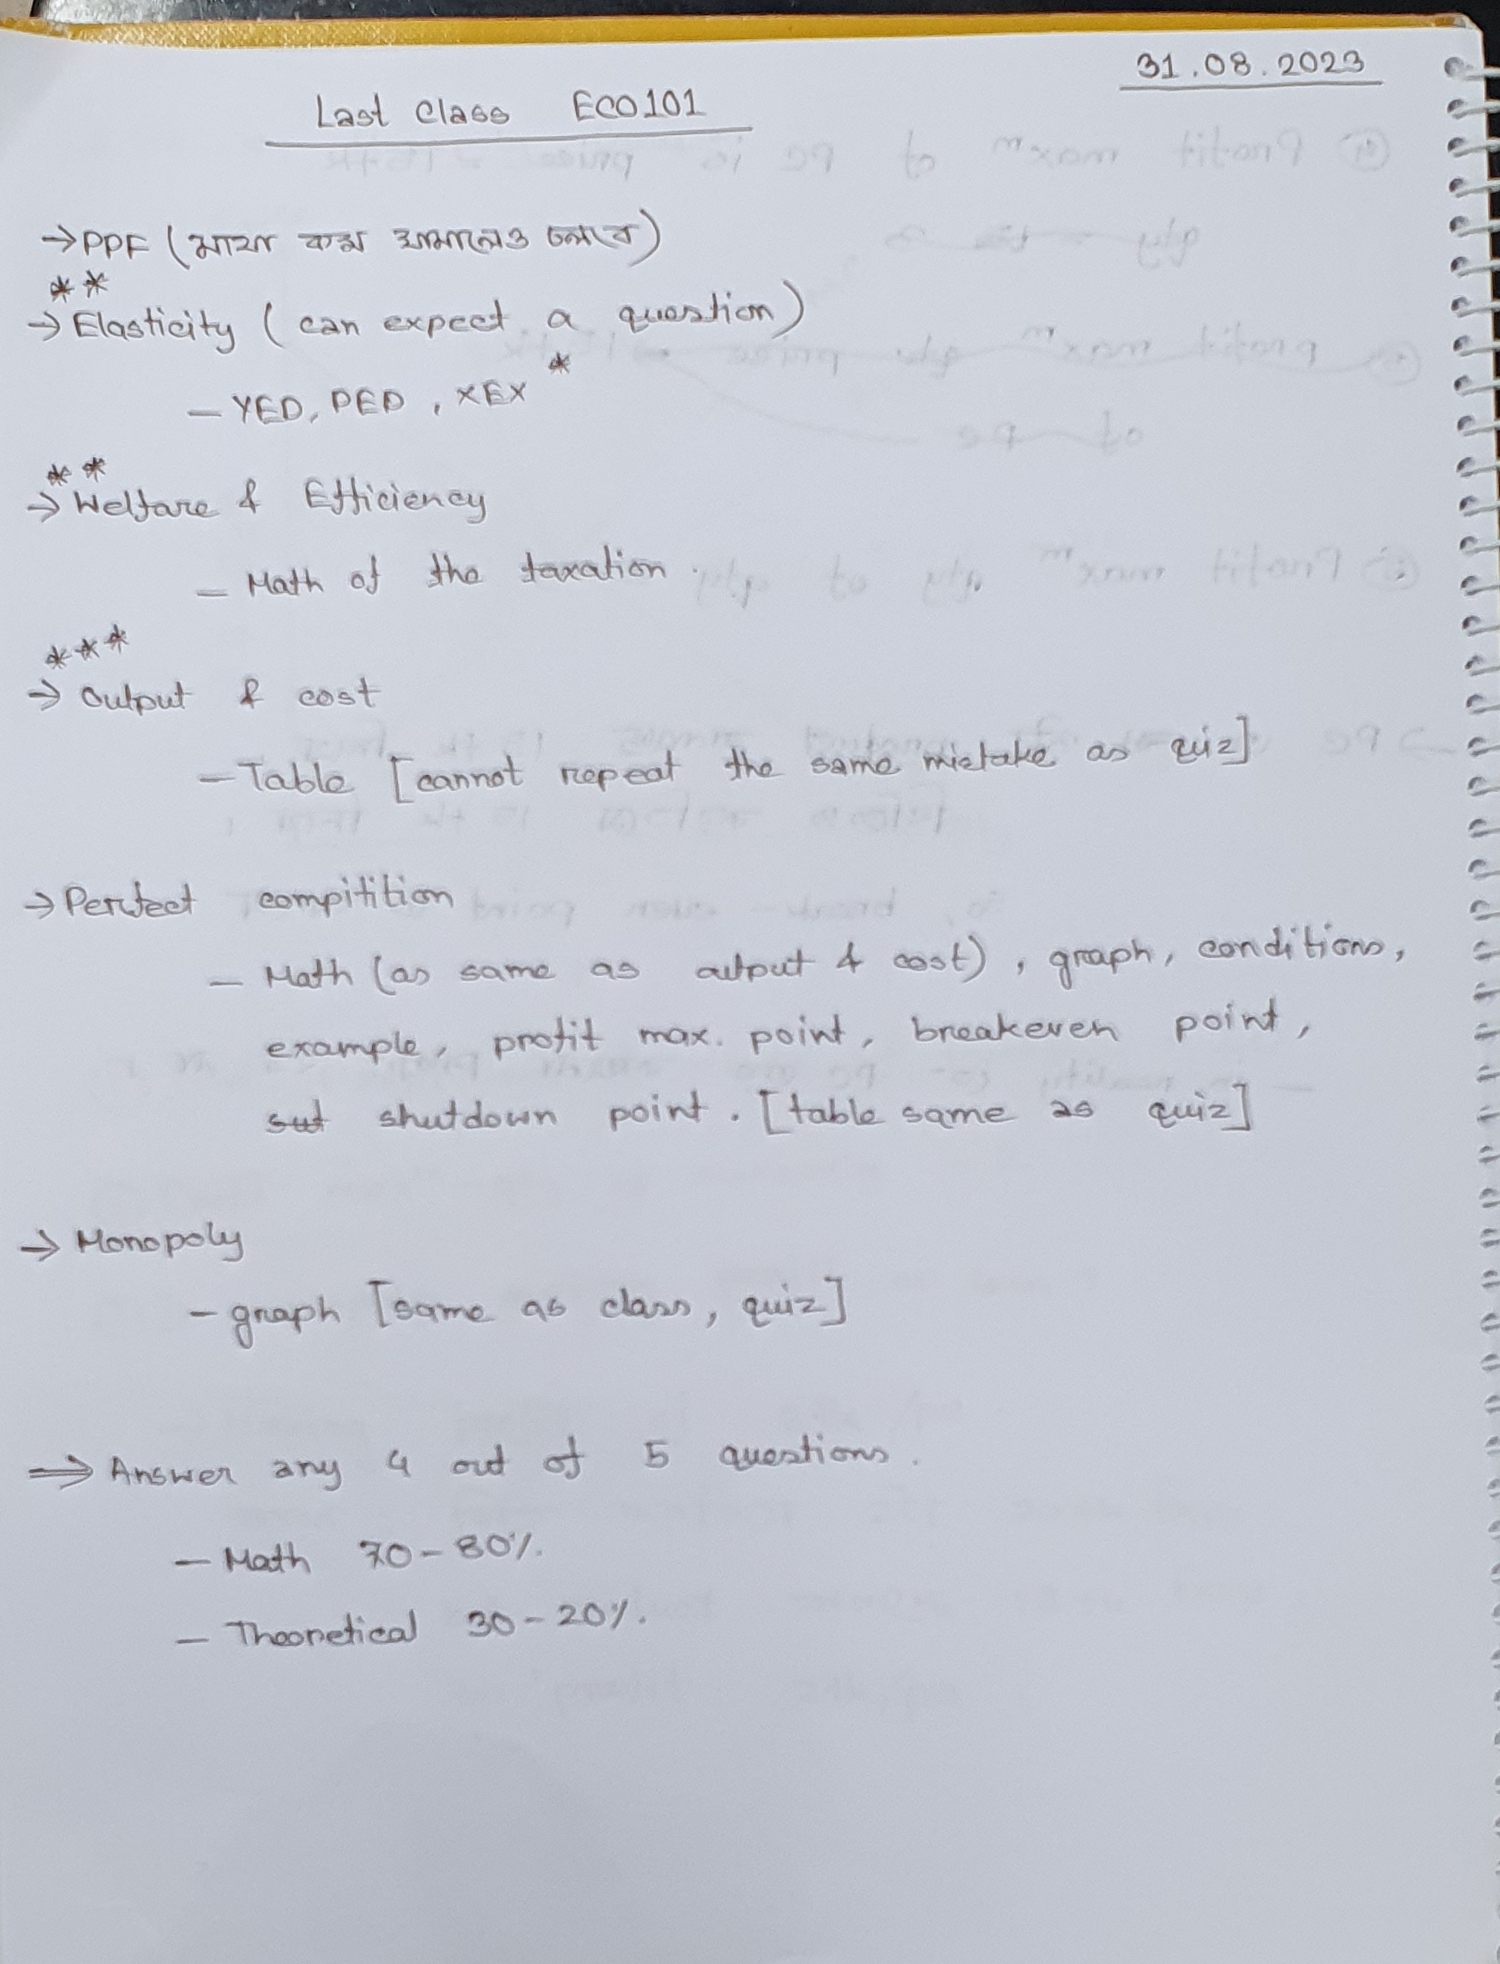 31.08.2023
Last Class ECO101
→ PPF (মাথা কম ঘামালেও চলবে)
**
→ Elasticity (can expect a question)
*
– YED, PED, XEX
**
→ Welfare & Efficiency
– Math of the taxation.
***
→ Output & cost
– Table [cannot repeat the same mistake as quiz]
→ Perfect compitition
– Math (as same as output & cost), graph, conditions,
example, profit max. point, breakeven point,
sut shutdown point. [table same as quiz]
→ Monopoly
– graph [same as class, quiz]
⇒ Answer any 4 out of 5 questions.
– Math 70-80%.
– Theoretical 30-20%.